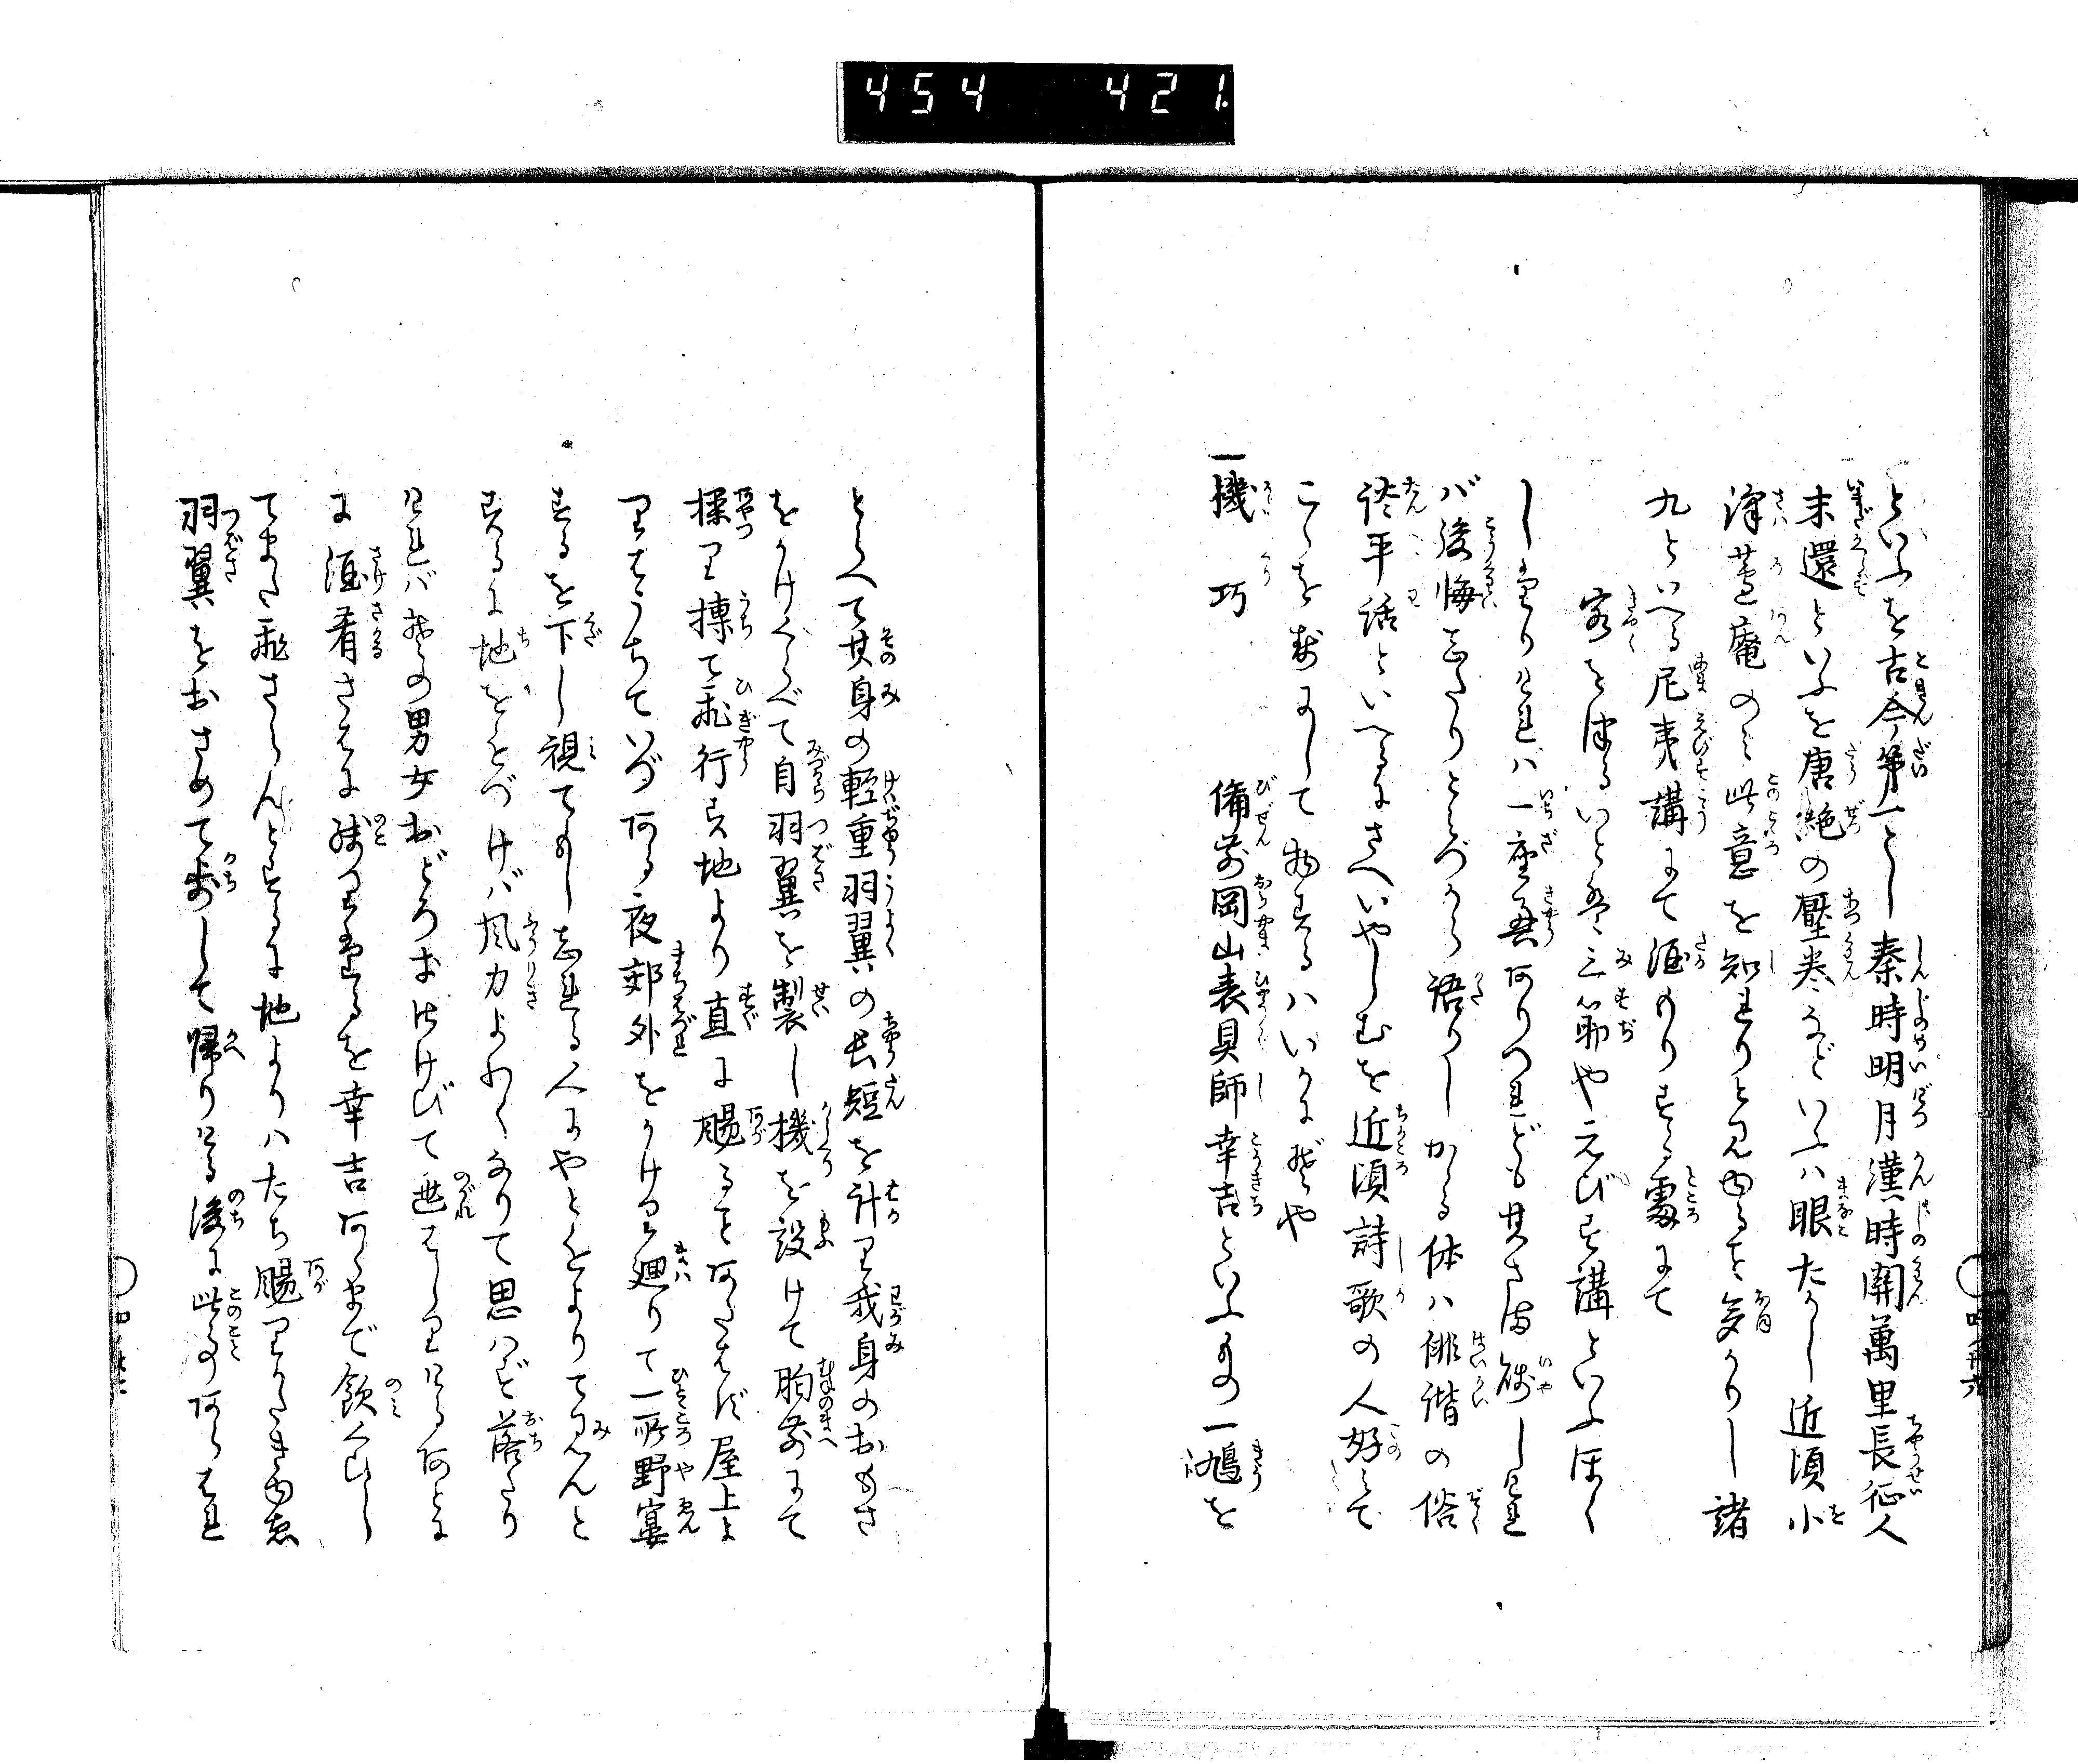 454 421
といふを古今第一とし秦時明月漢時關萬里長征人
未還といふを唐絶の壓巻などいふハ眼たかし近頃小
澤蘆庵のミ此意を知れりと見ゆること多かりし諸
九といへる尼夷講にて酒のりする處にて
客をはるいと三筋やえびす講といふほく
しありければハ一座興ありつれども其さま賤しけれ
バ後悔したりとミづから語りしかゝる体ハ俳諧の俗
談平話といへるにさへいやしむを近頃詩歌の人好ミて
こゝを専にして物するハいかにぞや
一機巧 備前岡山表具師幸吉といふもの一鳩を
とらへて其身の輕重羽翼の長短を計り我身のおもさ
をかけくらべて自羽翼を製し機を設けて胸前にて
操り搏て飛行す地より直に颺ることあたはず屋上よ
りはうちていづある夜郊外をかけり廻りて一所野宴
するを下し視てもし志れる人にやとちかよりて見んと
するに地ちかづけバ風力よわくなりて思ハず落たり
けれバその男女おどろきさけびて遁はしりけるあとに
に酒肴さはに残りたるを幸吉あくまで飲くひし
てまた飛さらんとするに地よりハたち颺りがたきゆゑ
羽翼をおさめて歩して帰りける後に此事あらはれ